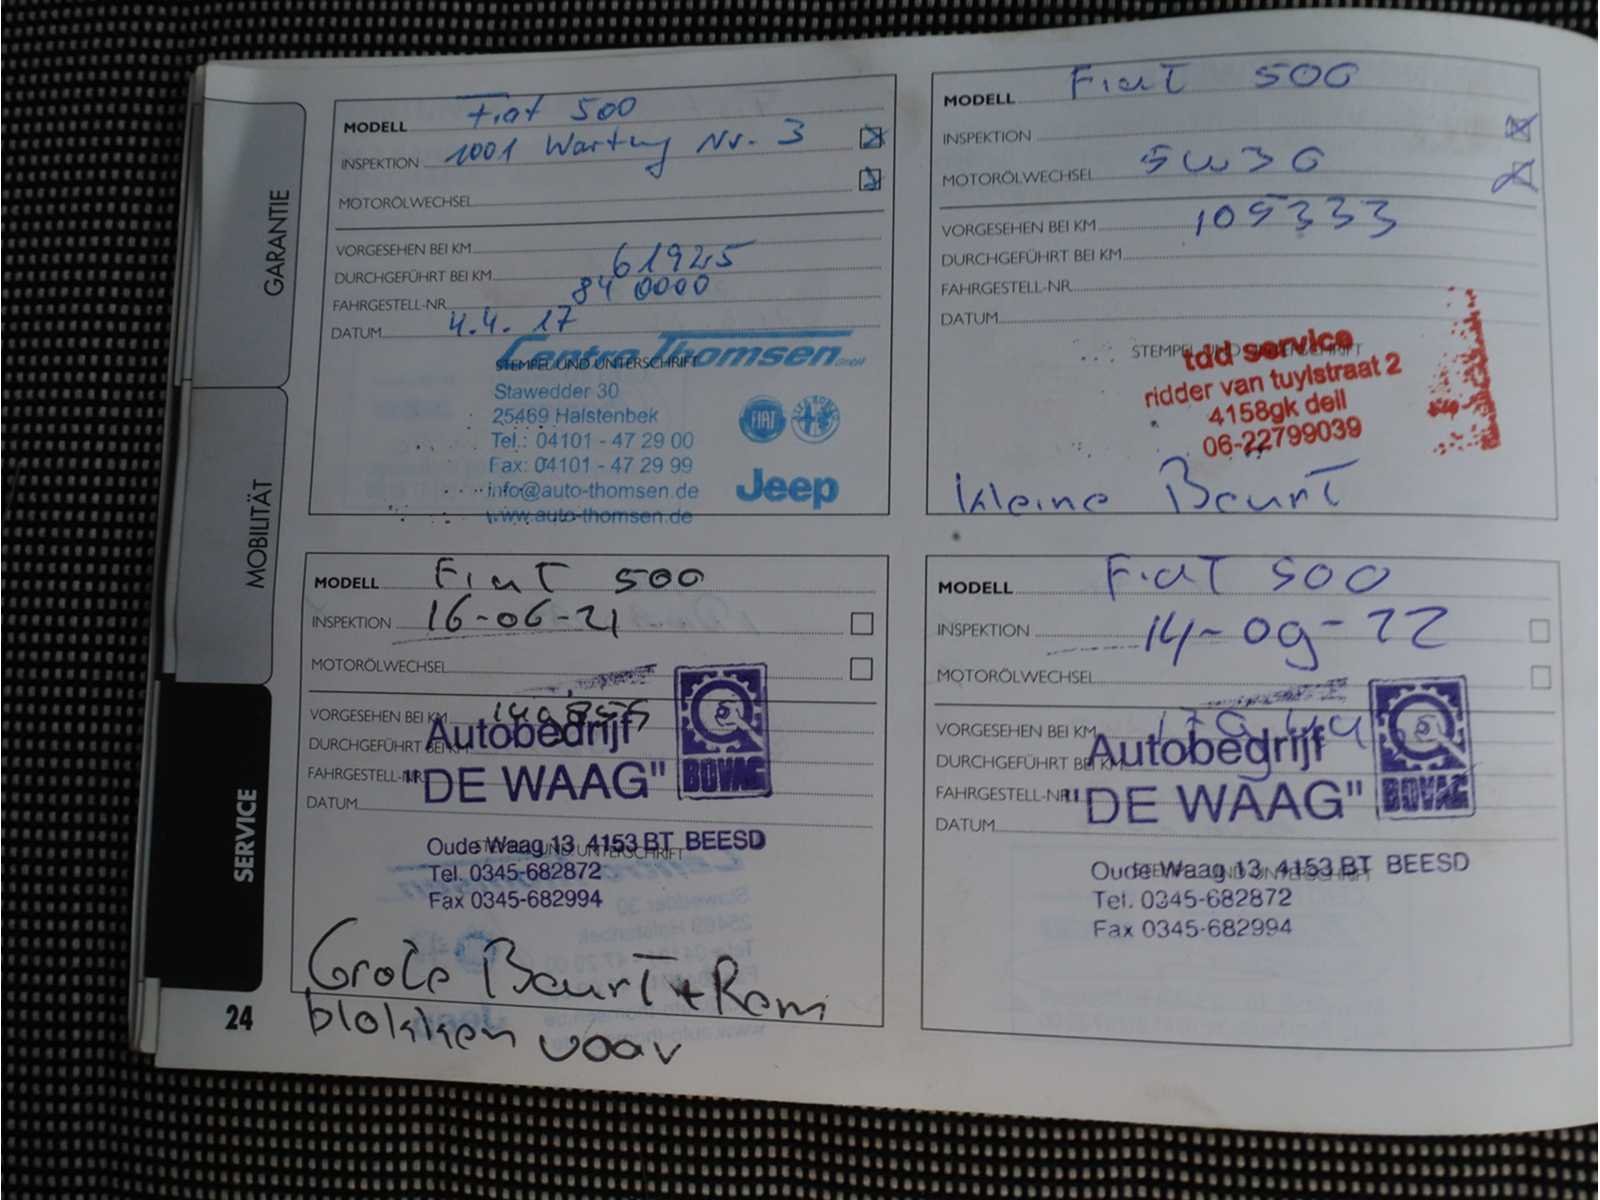 GARANTIE
MOBILITÄT
SERVICE
24
MODELL Fiat 500
INSPEKTION 1001 Wartung Nr. 3
MOTORÖLWECHSEL
VORGESEHEN BEI KM
DURCHGEFÜHRT BEI KM 61925
FAHRGESTELL-NR. 84 0000
DATUM 4.4.17
STEMPEL UND UNTERSCHRIFT
Centro Thomsen GmbH
Stawedder 30
25469 Halstenbek
Tel.: 04101 - 47 29 00
Fax: 04101 - 47 29 99
info@auto-thomsen.de
www.auto-thomsen.de
FIAT
Jeep
MODELL Fiat 500
INSPEKTION
MOTORÖLWECHSEL 5W30
VORGESEHEN BEI KM 105333
DURCHGEFÜHRT BEI KM
FAHRGESTELL-NR.
DATUM
STEMPEL UND UNTERSCHRIFT
tdd service
ridder van tuylstraat 2
4158gk deil
06-22799039
kleine Beurt
MODELL Fiat 500
INSPEKTION 16-06-21
MOTORÖLWECHSEL
VORGESEHEN BEI KM
DURCHGEFÜHRT BEI KM
FAHRGESTELL-NR.
DATUM
STEMPEL UND UNTERSCHRIFT
Autobedrijf
"DE WAAG"
BOVAG
Oude Waag 13 4153 BT BEESD
Tel. 0345-682872
Fax 0345-682994
Grote Beurt + Rem
blokken voor
MODELL Fiat 500
INSPEKTION 14-09-22
MOTORÖLWECHSEL
VORGESEHEN BEI KM
DURCHGEFÜHRT BEI KM
FAHRGESTELL-NR.
DATUM
STEMPEL UND UNTERSCHRIFT
Autobedrijf
"DE WAAG"
BOVAG
Oude Waag 13 4153 BT BEESD
Tel. 0345-682872
Fax 0345-682994